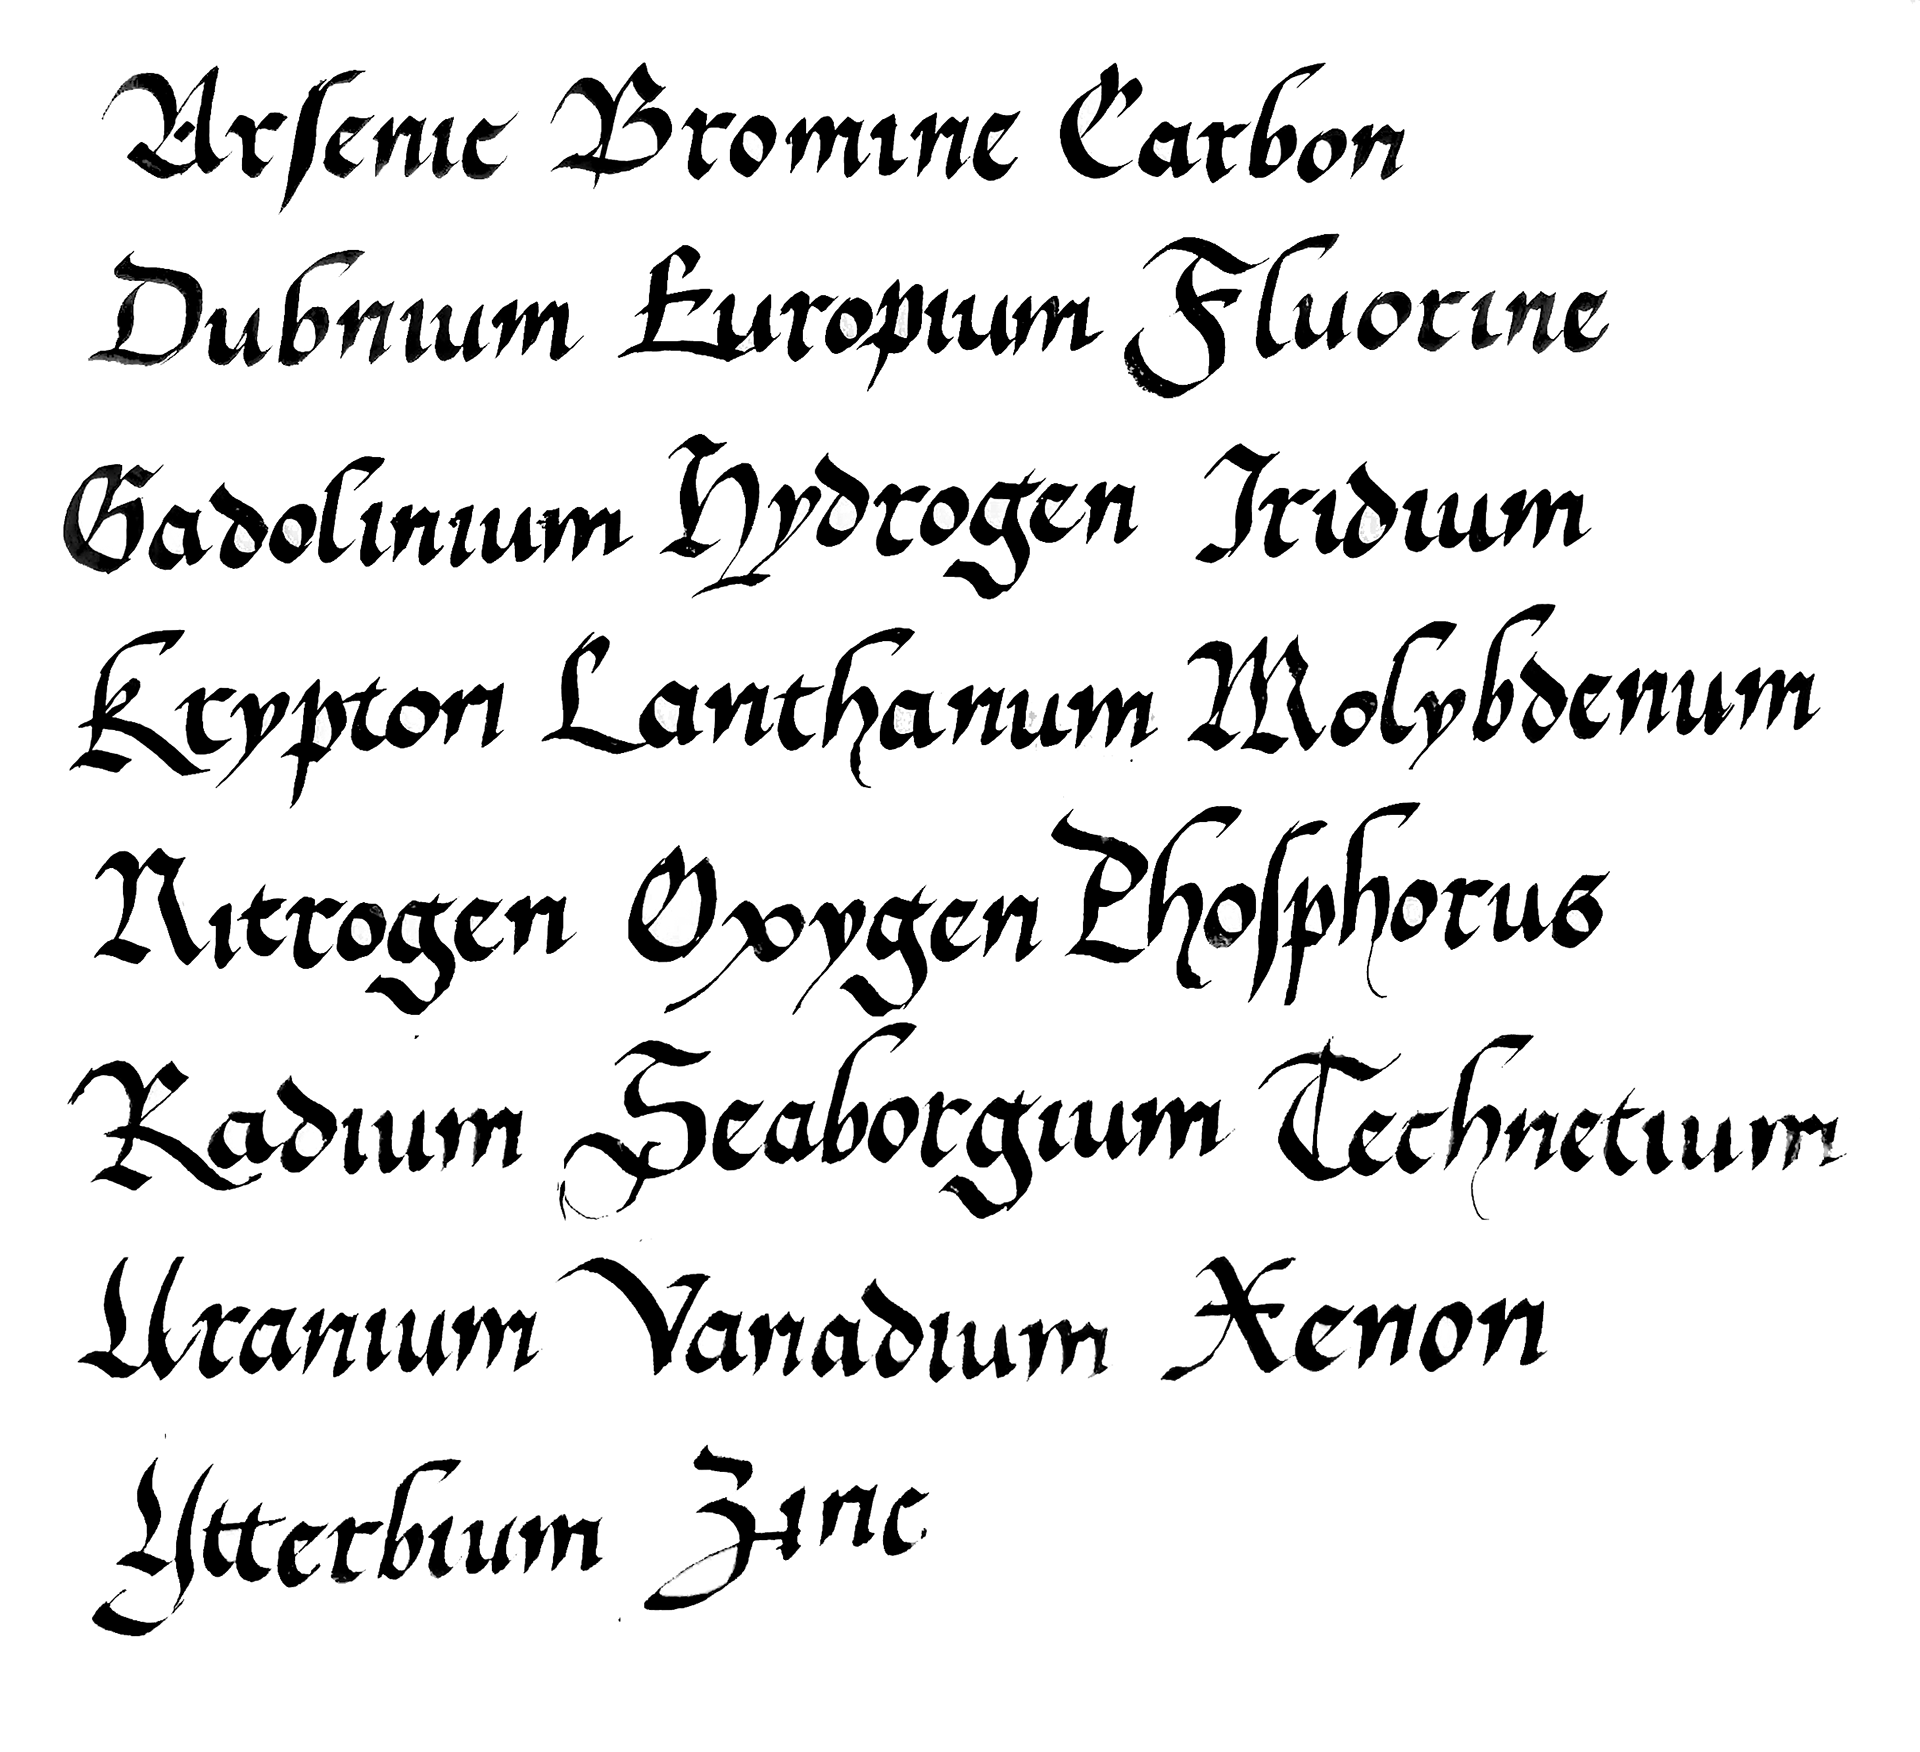 Arſenic Bromine Carbon
Dubnium Europium Fluorine
Gadolinium Hydrogen Iridium
Krypton Lanthanum Molybdenum
Nitrogen Oxygen Phoſphorus
Radium Seaborgium Technetium
Uranium Vanadium Xenon
Ytterbium Zinc